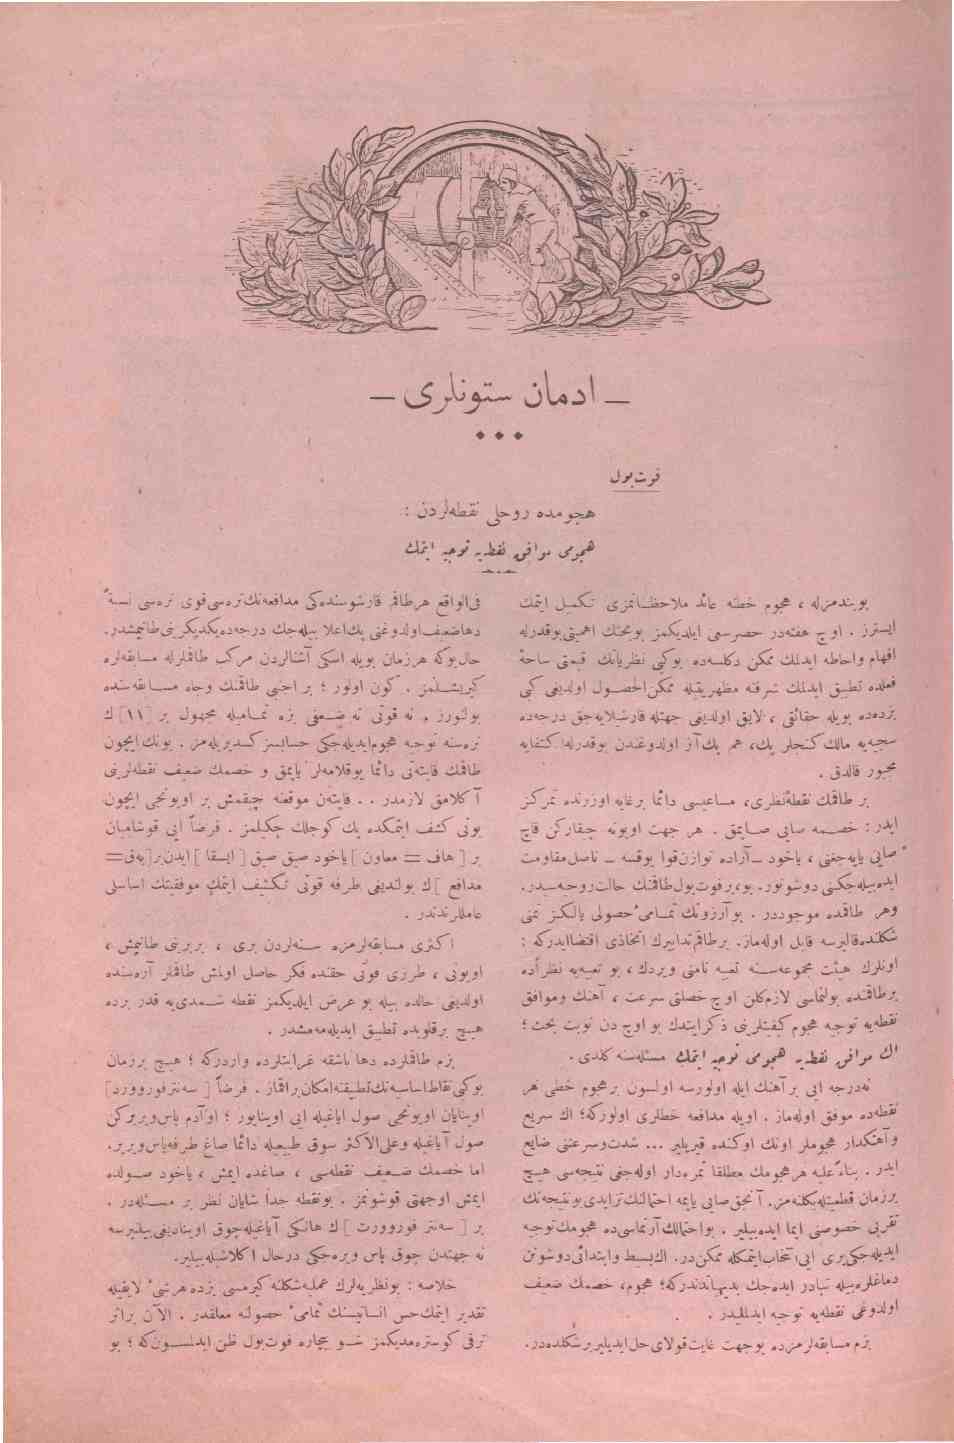 — ادمان ستونلرى —
فوت بول
هجومده روحلى نقطه‌لردن :
هجومى موافق نقطه‌يه توجيه ايتمك
بو بندمزله ، هجوم خطنه عائد ملاحظـاتمزى تكميل ايتمك
ايسترز . اوچ هفته‌در حصر سعى ايلديكمز بو بحثك اهميتى بوقدرله
افهام واحاطه ايدلمك ممكن دكلسه‌ده بوكبى نظرياتك قيمتى ساحۀ
فعلده تطبيق ايدلمك شرفنه مظهريتيله ممكن الحصـول اولديغى كبى
بزده‌ده بويله حقائقى ، لايق اولديغى جهتله قارشيلايه‌جق درجه‌ده
سجيه‌يه مالك كنجلر پك، هم پك آز اولدوغندن بوقدرله اكتفايه
مجبور قالدق .
بر طاقمك نقطۀ نظرى، مساعيسى دائما برغايه اوزرنده تمركز
ايدر : خصمه صايى صـايمق . هر جهت اويونه چيقاركن قاچ
صايى ياپه‌جغنى ، ياخود — آراده توازن قوا يوقسه — ناصل مقاومت
ايده‌بيله‌جكنى دوشونور. بو، برفوت بول طاقمنك حالت روحيه‌سـيدر.
وهر طاقمده موجوددر . بو آرزونك تمـامئ حصولى يالكز تمنى
شكلنده قاليرسه قابل اوله‌ماز. برطاقم تدابيرك اتخاذى اقتضا ايدركه :
اونلرك هيئت مجموعه‌سـنه تعبيه نامنى ويردك ، بو تعبيه‌يه نظراً ده
برطاقمده بولنماسى لازم كلن اوچ خصلتى سرعت ، آهنك وموافق
نقطه‌يه توجيه هجوم كيفيتلرينى ذكر ايتدك بو اوچ دن نوبت بحث ؛
اك موافق نقطه‌يه هجومى توجيه ايتمك مسئله‌سنه كلدى .
نه‌درجه ايى بر آهنك ايله اولورسه اولسون برهجوم خطى هر
نقطه‌ده موفق اوله‌ماز . اويله مدافعه خطلرى اولوركه؛ اك سريع
وآهنكدار هجوملر اونك اوكنده قيريلير ... شدت وسرعتنى ضايع
ايدر . بناءً عليه هر هجومك مطلقا ثمره‌دار اوله‌جغى نتيجه‌سى هيچ
برزمان قطعيتله بكلنه‌مز. آنجق صايى ياپمه احتمالنك تزايدى بو نتيجه‌نك
تقربى خصوصنى ايما ايده‌بيلير . بو احتمالك آرتماسى‌ده هجومك توجيه
ايديله‌جكى يرى ايى انتخاب ايتمكله ممكن‌در. اك بسيط وابتدائى دوشونن
دماغلره بيله تبادر ايده‌جك بديهياتدندركه؛ هجوم، خصمك ضعيف
اولدوغى نقطه‌يه توجيه ايدلمليدر .
بزم مسابقه‌لرمزده بوجهت غايت قولاى حل ايديلير برشكلده‌در.
فى‌الواقع هرطاقم قارشوسنده‌كى مدافعه‌نك نره‌سى قوى نره‌سى نسبةً
دها ضعيف اولدوغنى پك اعلا بيله‌جك درجه‌ده يكديكرينى طانيمشدر.
حال بوكه هرزمان بويله اسكى آشنالردن مركب طاقملرله مسابقه‌لره
كيريشـلمز . كون اولور ؛ بر اجنبى طاقمنك وجاه مسـابقه‌سنده
بولنورز ، نه قوتى نه ضـعفى بزه تمـاميله مجهول بر [١١] ك
نره‌سنه توجيه هجوم ايديله‌جكى حسابسز كسديريله‌مز . بونك ايچون
طاقمك قاپته‌نى دائما يوقلامه‌لر ياپمق و خصمك ضعيف نقطه‌لرينى
آكلامق لازمدر . . قاپته‌ن موقعنه چيقمش بر اويونجى ايچون
بونى كشف ايتمكده پك كوجلك چكيلمز . فرضاً ايى قوشاميان
بر [ هاف = معاون ] ياخود صيق صيق [ ايسقا ] ايدن بر [ به‌ق =
مدافع ] ك بولنديغى طرفه قوتى تكشيف ايتمك موفقيتك اساسلى
عاملرندندر .
اكثرى مسابقه‌لرمزده سـنه‌لردن برى ، بربرينى طانيمش ،
اويونى ، طرزى قوتى حقنده فكر حاصل اولمش طاقملر آره‌سنده
اولديغى حالده بيله بو عرض ايلديكمز نقطه شـمدى‌يه قدر بزده
هيچ برقلوبده تطبيق ايديله‌مه‌مشدر .
بزم طاقملرده دها باشقه غرابتلرده واردركه ؛ هيچ برزمان
بوكبى نقاط اساسيه‌نك تطبيقنه امكان براقماز . فرضاً [ سه‌نتر فوروورد ]
اوينايان اويونجى صول اياغيله ايى اوينايور ؛ او آدم پاس ويريركن
صول آياغيله وعلى الاكثر سوق طبيعيله دائما صاغ طرفه پاس ويرير.
اما خصمك ضـعيف نقطه‌سى ، صاغده ايمش ، ياخود صـولده
ايمش اوجهتى قوشونمز . بونقطه جداً شايان نظر بر مسـئله‌در .
بر [ سه‌نتر فوروورت ] ك هانكى آياغيله چوق اوينادينى بيلنيرسه
نه جهتدن چوق پاس ويره‌جكى درحال اكلاشيله‌بيلير.
خلاصه : بونظريه‌لرك عمليه شكلنه كيرمسى بزده هرشئ لايقيله
تقدير ايتمك حس انسـانيتنك تمامئ حصولنه معلقدر . الآن براثر
ترقى كوستره‌مديكمز شـو بيچاره فوت بول ظن ايدلمسـون كه ؛ بو